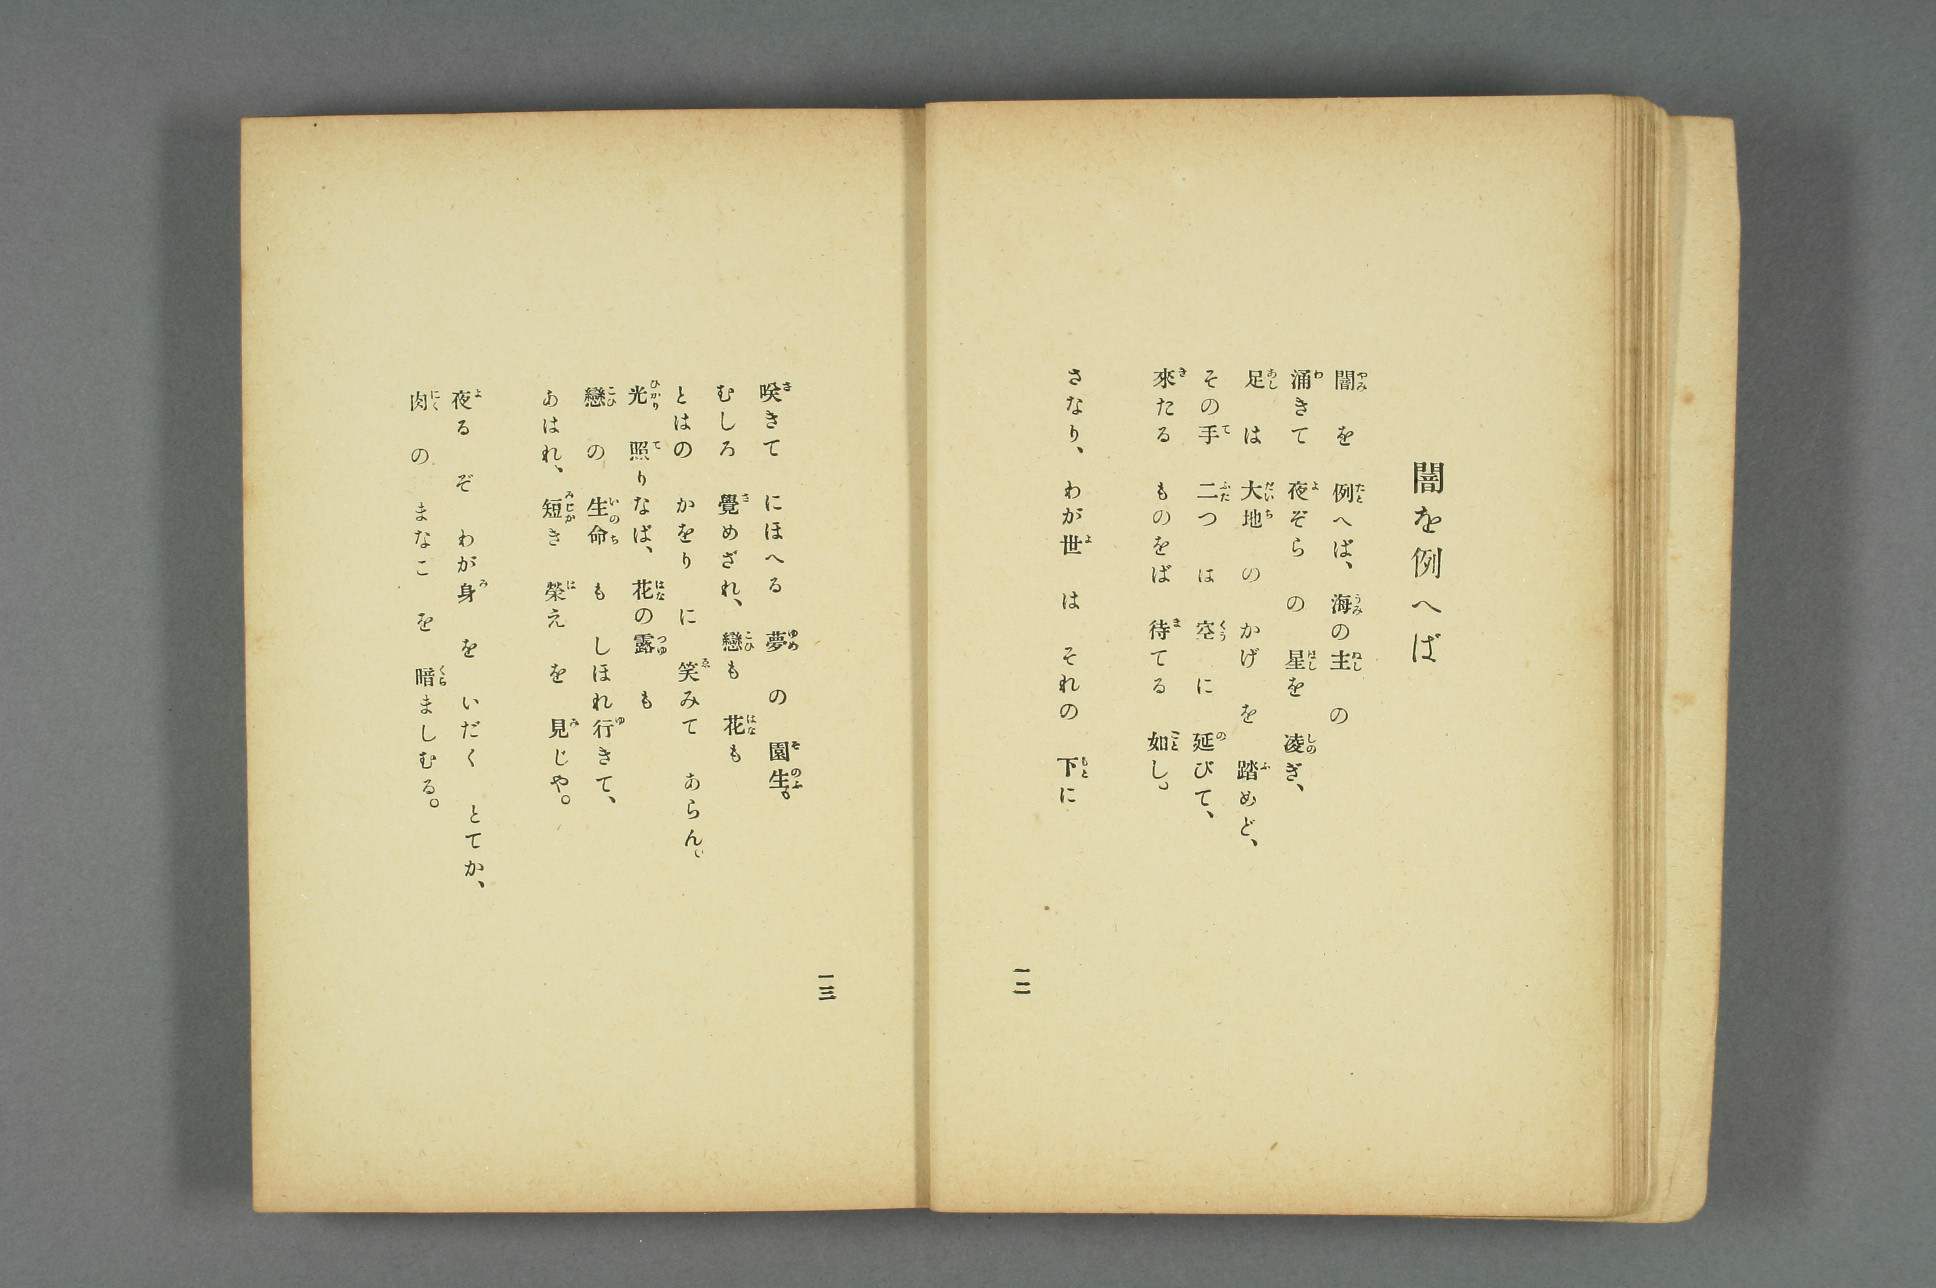 闇を例へば
闇を例へば、海の主の
涌きて夜ぞらの星を凌ぎ、
足は大地のかげを踏めど、
その手二つは空に延びて、
來たるものをば待てる如し。
さなり、わが世はそれの下に
一二
咲きてにほへる夢の園生も。
むしろ覺めざれ、戀も花も
とはのかをりに笑みてあらん。
光照りなば、花の露も
戀の生命もしほれ行きて、
あはれ、短き榮えを見じや。
夜るぞわが身をいだくとてか、
肉のまなこを暗ましむる。
一三